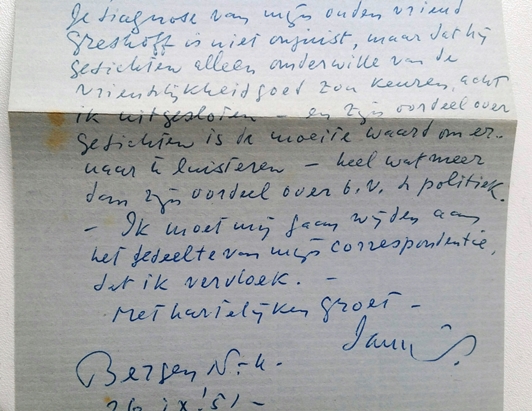 Je diagnose van mijn ouden vriend
Greshoff is niet onjuist, maar dat hij
gedichten alleen onderwille van de
vriendlijkheid goed zou keuren, acht
ik uitgesloten – en zijn oordeel over
gedichten is de moeite waard om er-
naar te luisteren – heel wat meer
dan zijn oordeel over b.v. de politiek.
– Ik moet mij gaan wijden aan
het gedeelte van mijn correspondentie,
dat ik vervloek. –
Met hartelijken groet –
Bergen N.-H.
26 IX '51 –